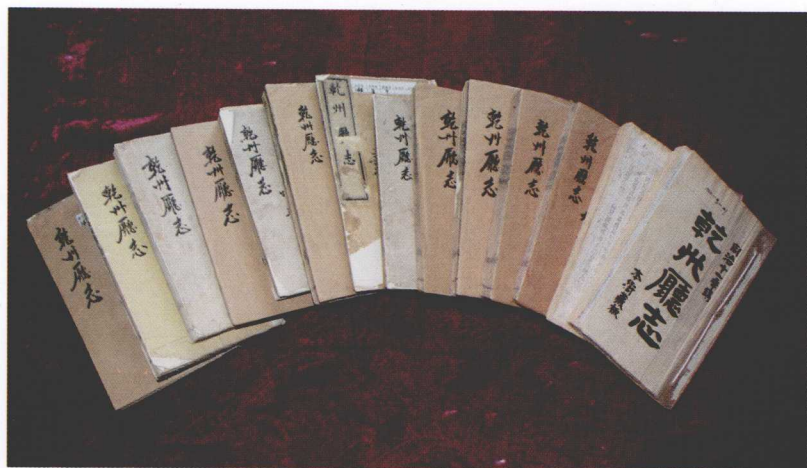 乾州廳志
乾州廳志
乾州廳志
乾州廳志
乾州廳志
乾州廳志
乾州廳志
乾州廳志
乾州廳志
乾州廳志
乾州廳志
乾州廳志
同治十一年
乾州廳志
本衙藏板